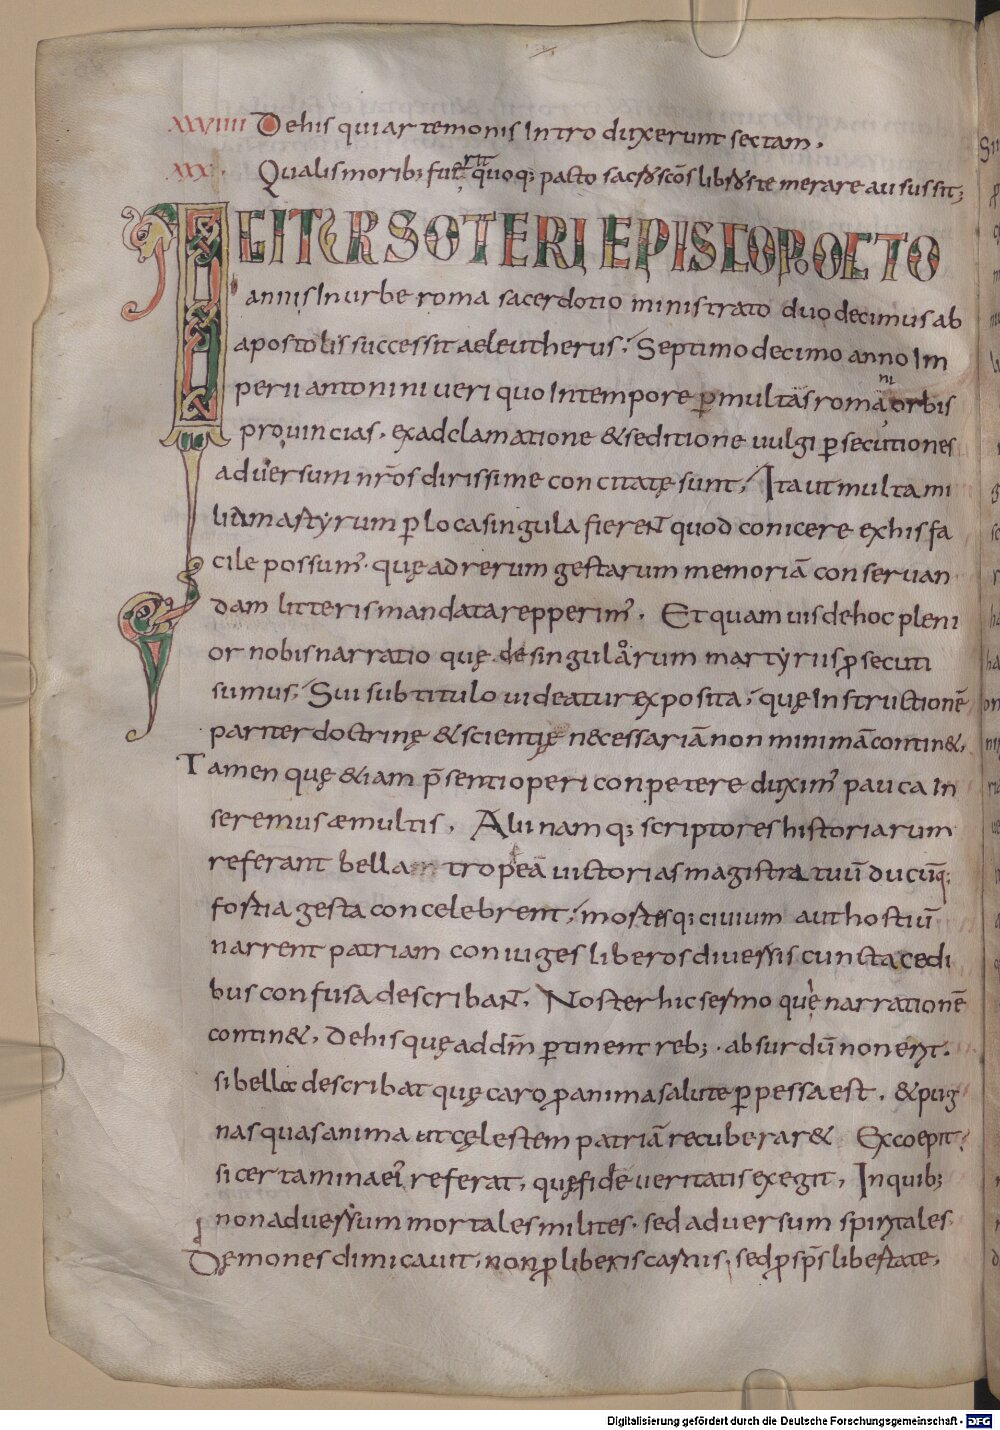 XXVIIII De his qui artemonis Introduxerunt sectam.
XXX. Qualis morib; fuerit quoq; pacto sacros scos libros temerare ausussit;
IGITUR SOTERI EPISCOP. OCTO
annis In urbe roma sacerdotio ministrato duodecimus ab
apostolis successit aeleutherus; Septimo decimo anno Im
perii antonini ueri quo In tempore pmultas romani orbis
prouincias. ex adclamatione & seditione uulgi psecutiones
aduersum nros dirissime concitatę sunt; Ita ut multa mi
lia martyrum p loca singula fierent quod conicere ex his fa
cile possum'. quę ad rerum gestarum memoriā conseruan
dam litteris mandata repperim'. Et quamuis de hoc pleni
or nobis narratio quę de singularum martyriis psecuti
sumus; Sui sub titulo uideatur exposita; quę Instructionē
pariter doctrinę & scientię necessariā non minimā contin&.
Tamen quę &iam psenti operi conpetere duxim' pauca In
seremus æ multis. Alii namq; scriptores historiarum
referant bella tropea uictorias magistratuū ducūq;
fortia gesta concelebrent; mortesq; ciuium aut hostiū
narrent patriam coniuges liberos diuersis cuncta cedi
bus confusa describant. Noster hic sermo què narrationē
contin&. De his quę ad dm ptinent reb;. absurdū non erit.
si bella describat quę caro p anima salute ppessa est. & pug
nas quas anima ut cęlestem patriā recuperar& Excoepit;
si certamina ei referat. quę fide ueritatis exegit. In quib;
non aduersum mortales milites. sed aduersum spiritales
Demones dimicauit. non p liberis carnis. sed p sps libertate.
Digitalisierung gefördert durch die Deutsche Forschungsgemeinschaft - DFG